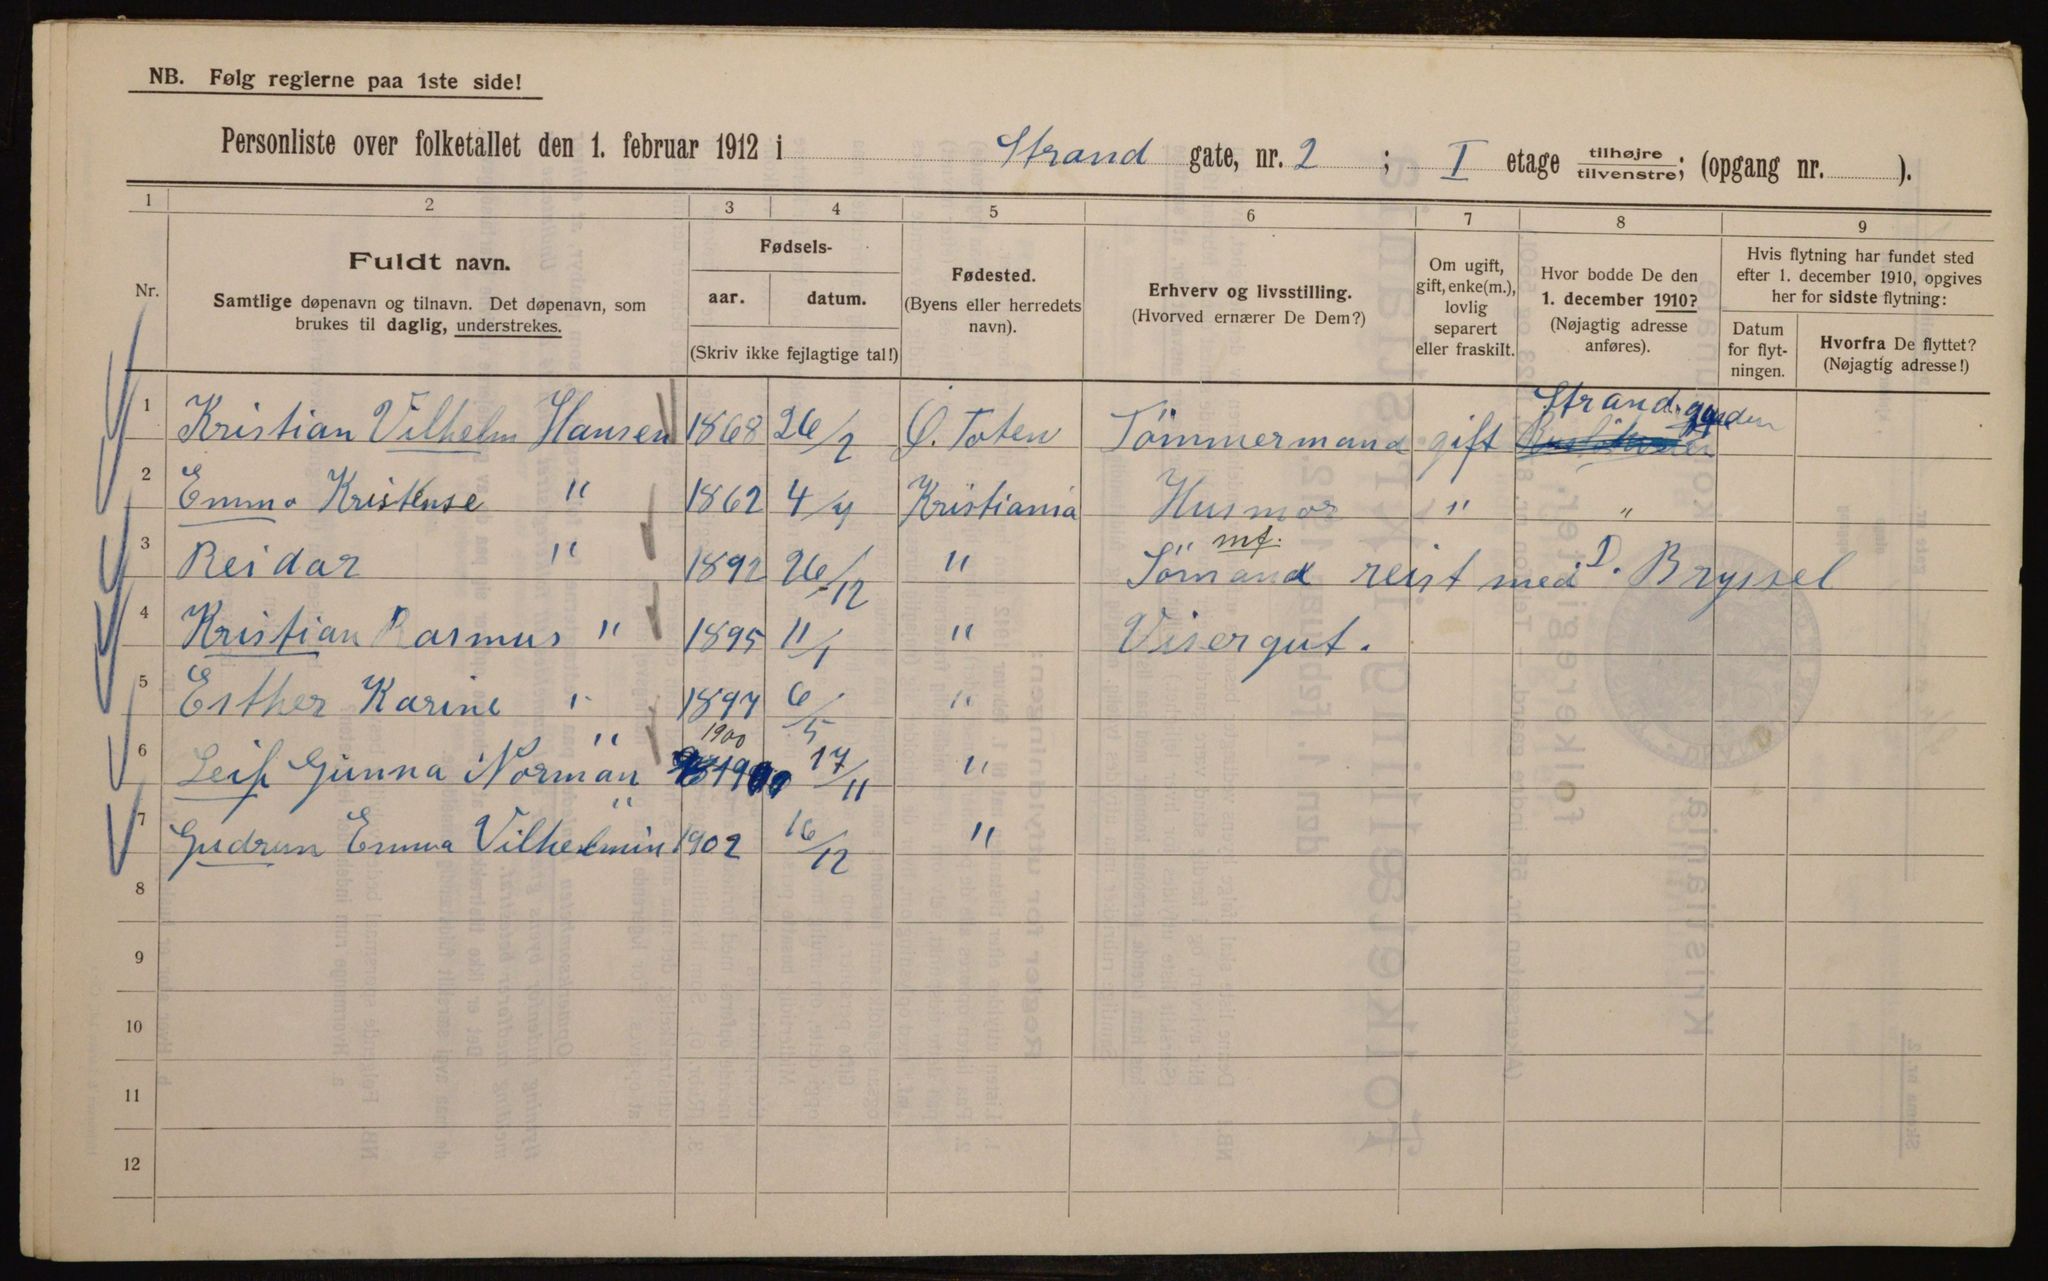 NB. Følg reglerne paa 1ste side!
Personliste over folketallet den 1. februar 1912 i Strand gate, nr. 2 ; I etage tilhøjre/tilvenstre; (opgang nr. ).
1 2 3 4 5 6 7 8 9
Nr.
Fuldt navn.
Samtlige døpenavn og tilnavn. Det døpenavn, som
brukes til daglig, understrekes.
Fødsels-
aar. datum.
(Skriv ikke fejlagtige tal!)
Fødested.
(Byens eller herredets
navn).
Erhverv og livsstilling.
(Hvorved ernærer De Dem?)
Om ugift,
gift, enke(m.),
lovlig
separert
eller fraskilt.
Hvor bodde De den
1. december 1910?
(Nøjagtig adresse
anføres).
Hvis flytning har fundet sted
efter 1. december 1910, opgives
her for sidste flytning:
Datum
for flyt-
ningen.
Hvorfra De flyttet?
(Nøjagtig adresse!)
Strand-gaden
1 Kristian Vilhelm Hansen 1868 26/2 Ö. Toten Tömmermand gift
2 Emma Kristense " 1862 4/4 Kristiania Husmor " "
mf.
3 Reidar " 1892 26/12 " Sömand reist med D. Bryssel
4 Kristian Rasmus " 1895 11/1 " Visergut.
5 Esther Karine " 1897 6/5 "
" 1900
6 Leif Gunna Norman 1900 17/11 "
"
7 Gudrun Emma Vilhelmin 1902 16/12 "
8
9
10
11
12